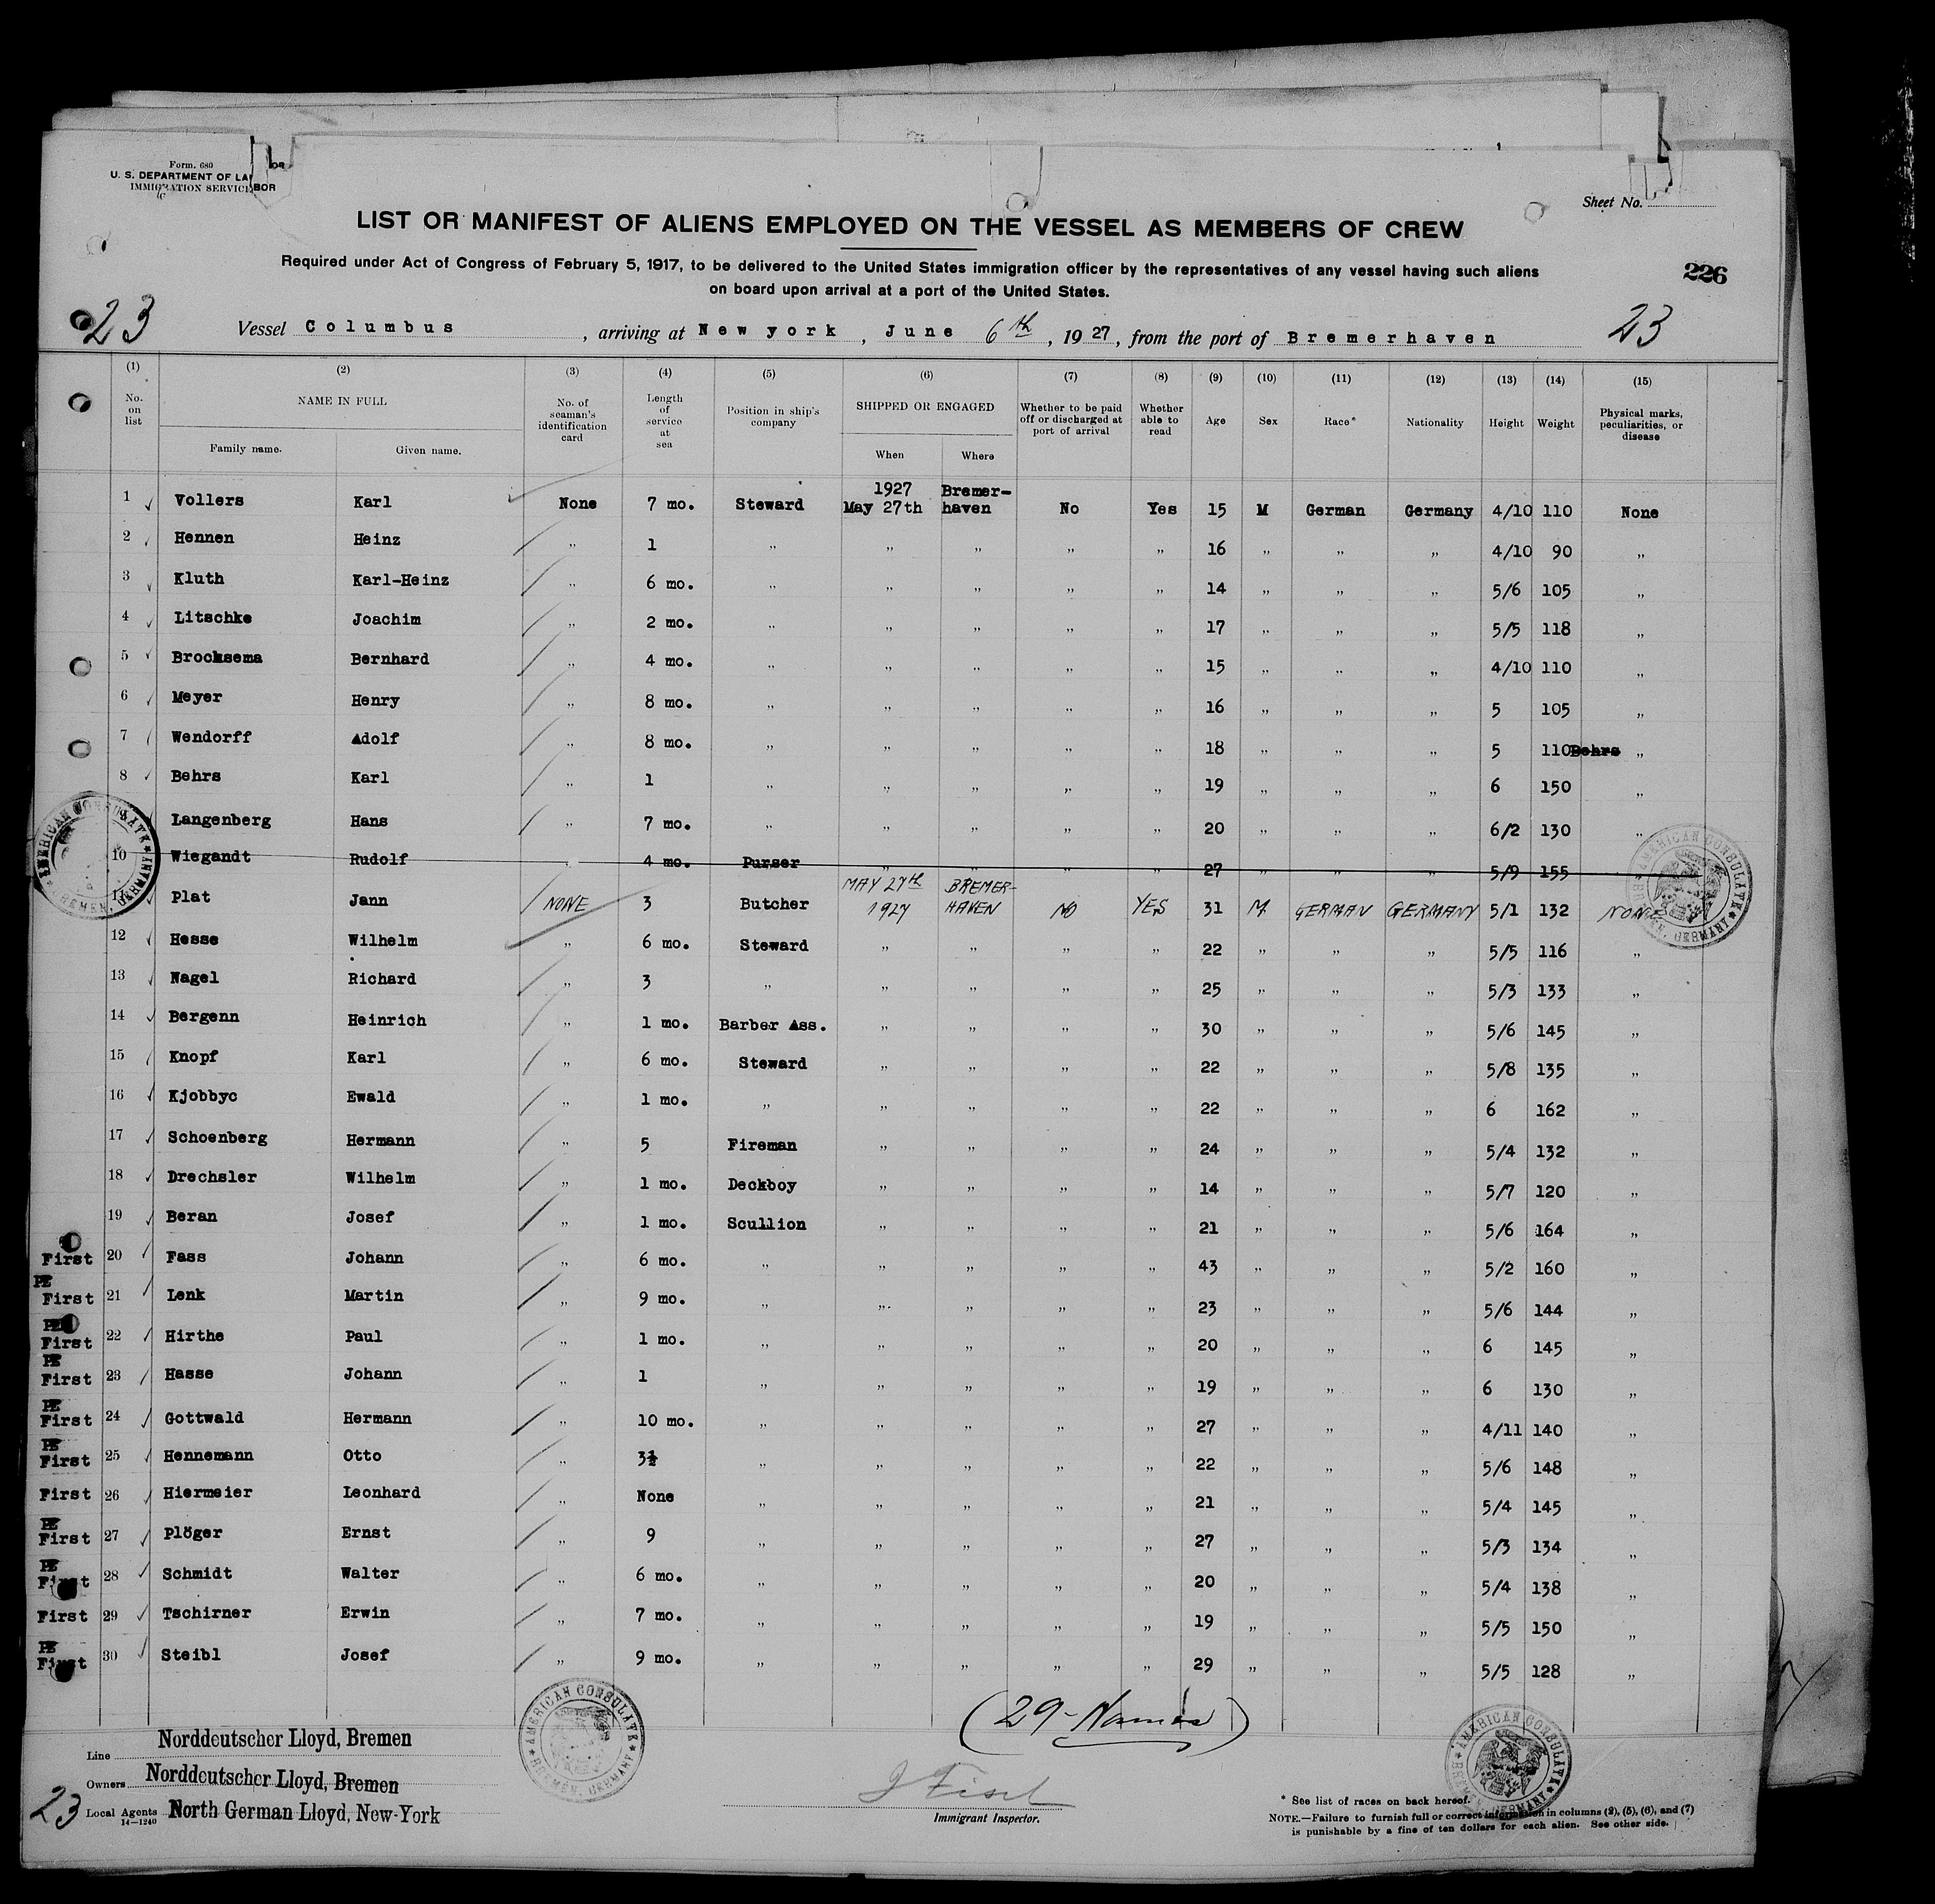 Form. 680
U. S. DEPARTMENT OF LABOR
IMMIGRATION SERVICE
Sheet No.
LIST OR MANIFEST OF ALIENS EMPLOYED ON THE VESSEL AS MEMBERS OF CREW
Required under Act of Congress of February 5, 1917, to be delivered to the United States immigration officer by the representatives of any vessel having such aliens
on board upon arrival at a port of the United States.
226
23 Vessel Columbus, arriving at New york, June 6th, 1927, from the port of Bremerhaven 23
(1) No. on list (2) NAME IN FULL Family name. Given name. (3) No. of seaman's identification card (4) Length of service at sea (5) Position in ship's company (6) SHIPPED OR ENGAGED When Where (7) Whether to be paid off or discharged at port of arrival (8) Whether able to read (9) Age (10) Sex (11) Race* (12) Nationality (13) Height (14) Weight (15) Physical marks, peculiarities, or disease
1 Vollers Karl None 7 mo. Steward 1927 May 27th Bremer-haven No Yes 15 M German Germany 4/10 110 None
2 Hennen Heinz „ 1 „ „ „ „ „ 16 „ „ „ 4/10 90 „
3 Kluth Karl-Heinz „ 6 mo. „ „ „ „ „ 14 „ „ „ 5/6 105 „
4 Litschke Joachim „ 2 mo. „ „ „ „ „ 17 „ „ „ 5/5 118 „
5 Brocksema Bernhard „ 4 mo. „ „ „ „ „ 15 „ „ „ 4/10 110 „
6 Meyer Henry „ 8 mo. „ „ „ „ „ 16 „ „ „ 5 105 „
7 Wendorff Adolf „ 8 mo. „ „ „ „ „ 18 „ „ „ 5 110 Behrs „
8 Behrs Karl „ 1 „ „ „ „ „ 19 „ „ „ 6 150 „
9 Langenberg Hans „ 7 mo. „ „ „ „ „ 20 „ „ „ 6/2 130 „
10 Wiegandt Rudolf „ 4 mo. Purser „ „ „ „ 27 „ „ „ 5/9 155
11 Plat Jann NONE 3 Butcher MAY 27th 1927 BREMER-HAVEN NO YES 31 M. GERMAN GERMANY 5/1 132 NONE
12 Hesse Wilhelm „ 6 mo. Steward „ „ „ „ 22 „ „ „ 5/5 116 „
13 Nagel Richard „ 3 „ „ „ „ „ 25 „ „ „ 5/3 133 „
14 Bergenn Heinrich „ 1 mo. Barber Ass. „ „ „ „ 30 „ „ „ 5/6 145 „
15 Knopf Karl „ 6 mo. Steward „ „ „ „ 22 „ „ „ 5/8 135 „
16 Kjobbyc Ewald „ 1 mo. „ „ „ „ „ 22 „ „ „ 6 162 „
17 Schoenberg Hermann „ 5 Fireman „ „ „ „ 24 „ „ „ 5/4 132 „
18 Drechsler Wilhelm „ 1 mo. Deckboy „ „ „ „ 14 „ „ „ 5/7 120 „
19 Beran Josef „ 1 mo. Scullion „ „ „ „ 21 „ „ „ 5/6 164 „
First 20 Fass Johann „ 6 mo. „ „ „ „ „ 43 „ „ „ 5/2 160 „
First 21 Lenk Martin „ 9 mo. „ „ „ „ „ 23 „ „ „ 5/6 144 „
First 22 Hirthe Paul „ 1 mo. „ „ „ „ „ 20 „ „ „ 6 145 „
First 23 Hasse Johann „ 1 „ „ „ „ „ 19 „ „ „ 6 130 „
First 24 Gottwald Hermann „ 10 mo. „ „ „ „ „ 27 „ „ „ 4/11 140 „
First 25 Hennemann Otto „ 3½ „ „ „ „ „ 22 „ „ „ 5/6 148 „
First 26 Hiermeier Leonhard „ None „ „ „ „ „ 21 „ „ „ 5/4 145 „
First 27 Plöger Ernst „ 9 „ „ „ „ „ 27 „ „ „ 5/3 134 „
First 28 Schmidt Walter „ 6 mo. „ „ „ „ „ 20 „ „ „ 5/4 138 „
First 29 Tschirner Erwin „ 7 mo. „ „ „ „ „ 19 „ „ „ 5/5 150 „
First 30 Steibl Josef „ 9 mo. „ „ „ „ „ 29 „ „ „ 5/5 128 „
AMERICAN CONSULATE BREMEN, GERMANY
(29-Names)
Line Norddeutscher Lloyd, Bremen
Owners Norddeutscher Lloyd, Bremen
23 Local Agents North German Lloyd, New-York
14—1240
Immigrant Inspector.
* See list of races on back hereof.
NOTE.—Failure to furnish full or correct information in columns (2), (5), (6), and (7)
is punishable by a fine of ten dollars for each alien. See other side.